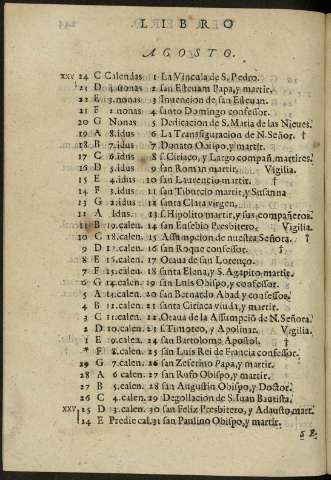 LIBRO
AGOSTO.
xxv 24 C Calendas 1 La Vincula de S. Pedro.
23 D 4.nonas 2 san Esteuam Papa,y martir.
22 E 3.nonas 3 Inuencion de san Esteuan.
21 F 2.nonas 4 santo Domingo confessor.
20 G Nonas 5 Dedicacion de S. Maria de las Nieues.
19 A 8.idus 6 La Transfiguracion de N. Señor. †
18 B 7.idus 7 Donato Obispo,y martir.
17 C 6.idus 8 s. Ciriaco, y Largo compañ. martires.
16 D 5.idus 9 san Roman martir. Vigilia.
15 E 4.idus 10 san Laurencio martir. †
14 F 3.idus 11 san Tiburcio martir, y Susanna
13 G 2.idus 12 santa Clara virgen.
12 A Idus. 13 s. Hipolito martir, y sus compañeros.
11 B 19.calen. 14 san Eusebio Presbitero. Vigilia.
10 C 18.calen. 15 Assumpcion de nuestra Señora. †
9 D 17.calen. 16 san Roque confessor. †
8 E 16.calen. 17 Otaua de san Lorenço.
7 F 15.calen. 18 santa Elena, y S. Agapito martir.
6 G 14.calen. 19 san Luis Obispo, y confessor.
5 A 13.calen. 20 san Bernardo Abad, y confessor.
4 B 12.calen. 21 santa Ciriaca viuda, y martir.
3 C 11.calen. 22 Otaua de la Assumpciō de N. Señora.
2 D 10.calen. 23 s. Timoteo, y Apolinar. Vigilia.
1 E 9.calen. 24 san Bartolome Apostol. †
* F 8.calen. 25 san Luis Rei de Francia confessor.
29 G 7.calen. 26 san Zeferino Papa, y martir.
28 A 6.calen. 27 san Rufo Obispo, y martir.
27 B 5.calen. 28 san Augustin Obispo, y Doctor.
26 C 4.calen. 29 Degollacion de S. Iuan Bautista.
xxv 25 D 3.calen. 30 san Feliz Presbitero, y Adausto mart.
24 E Predie cal. 31 san Paulino Obispo, y martir.